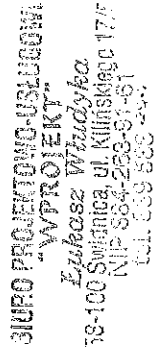 BIURO PROJEKTOWO-USŁUGOWE
"WPROJEKT"
Łukasz Władyka
58-100 Świdnica, ul. Kilińskiego 17/
NIP 884-263-91-61
tel.